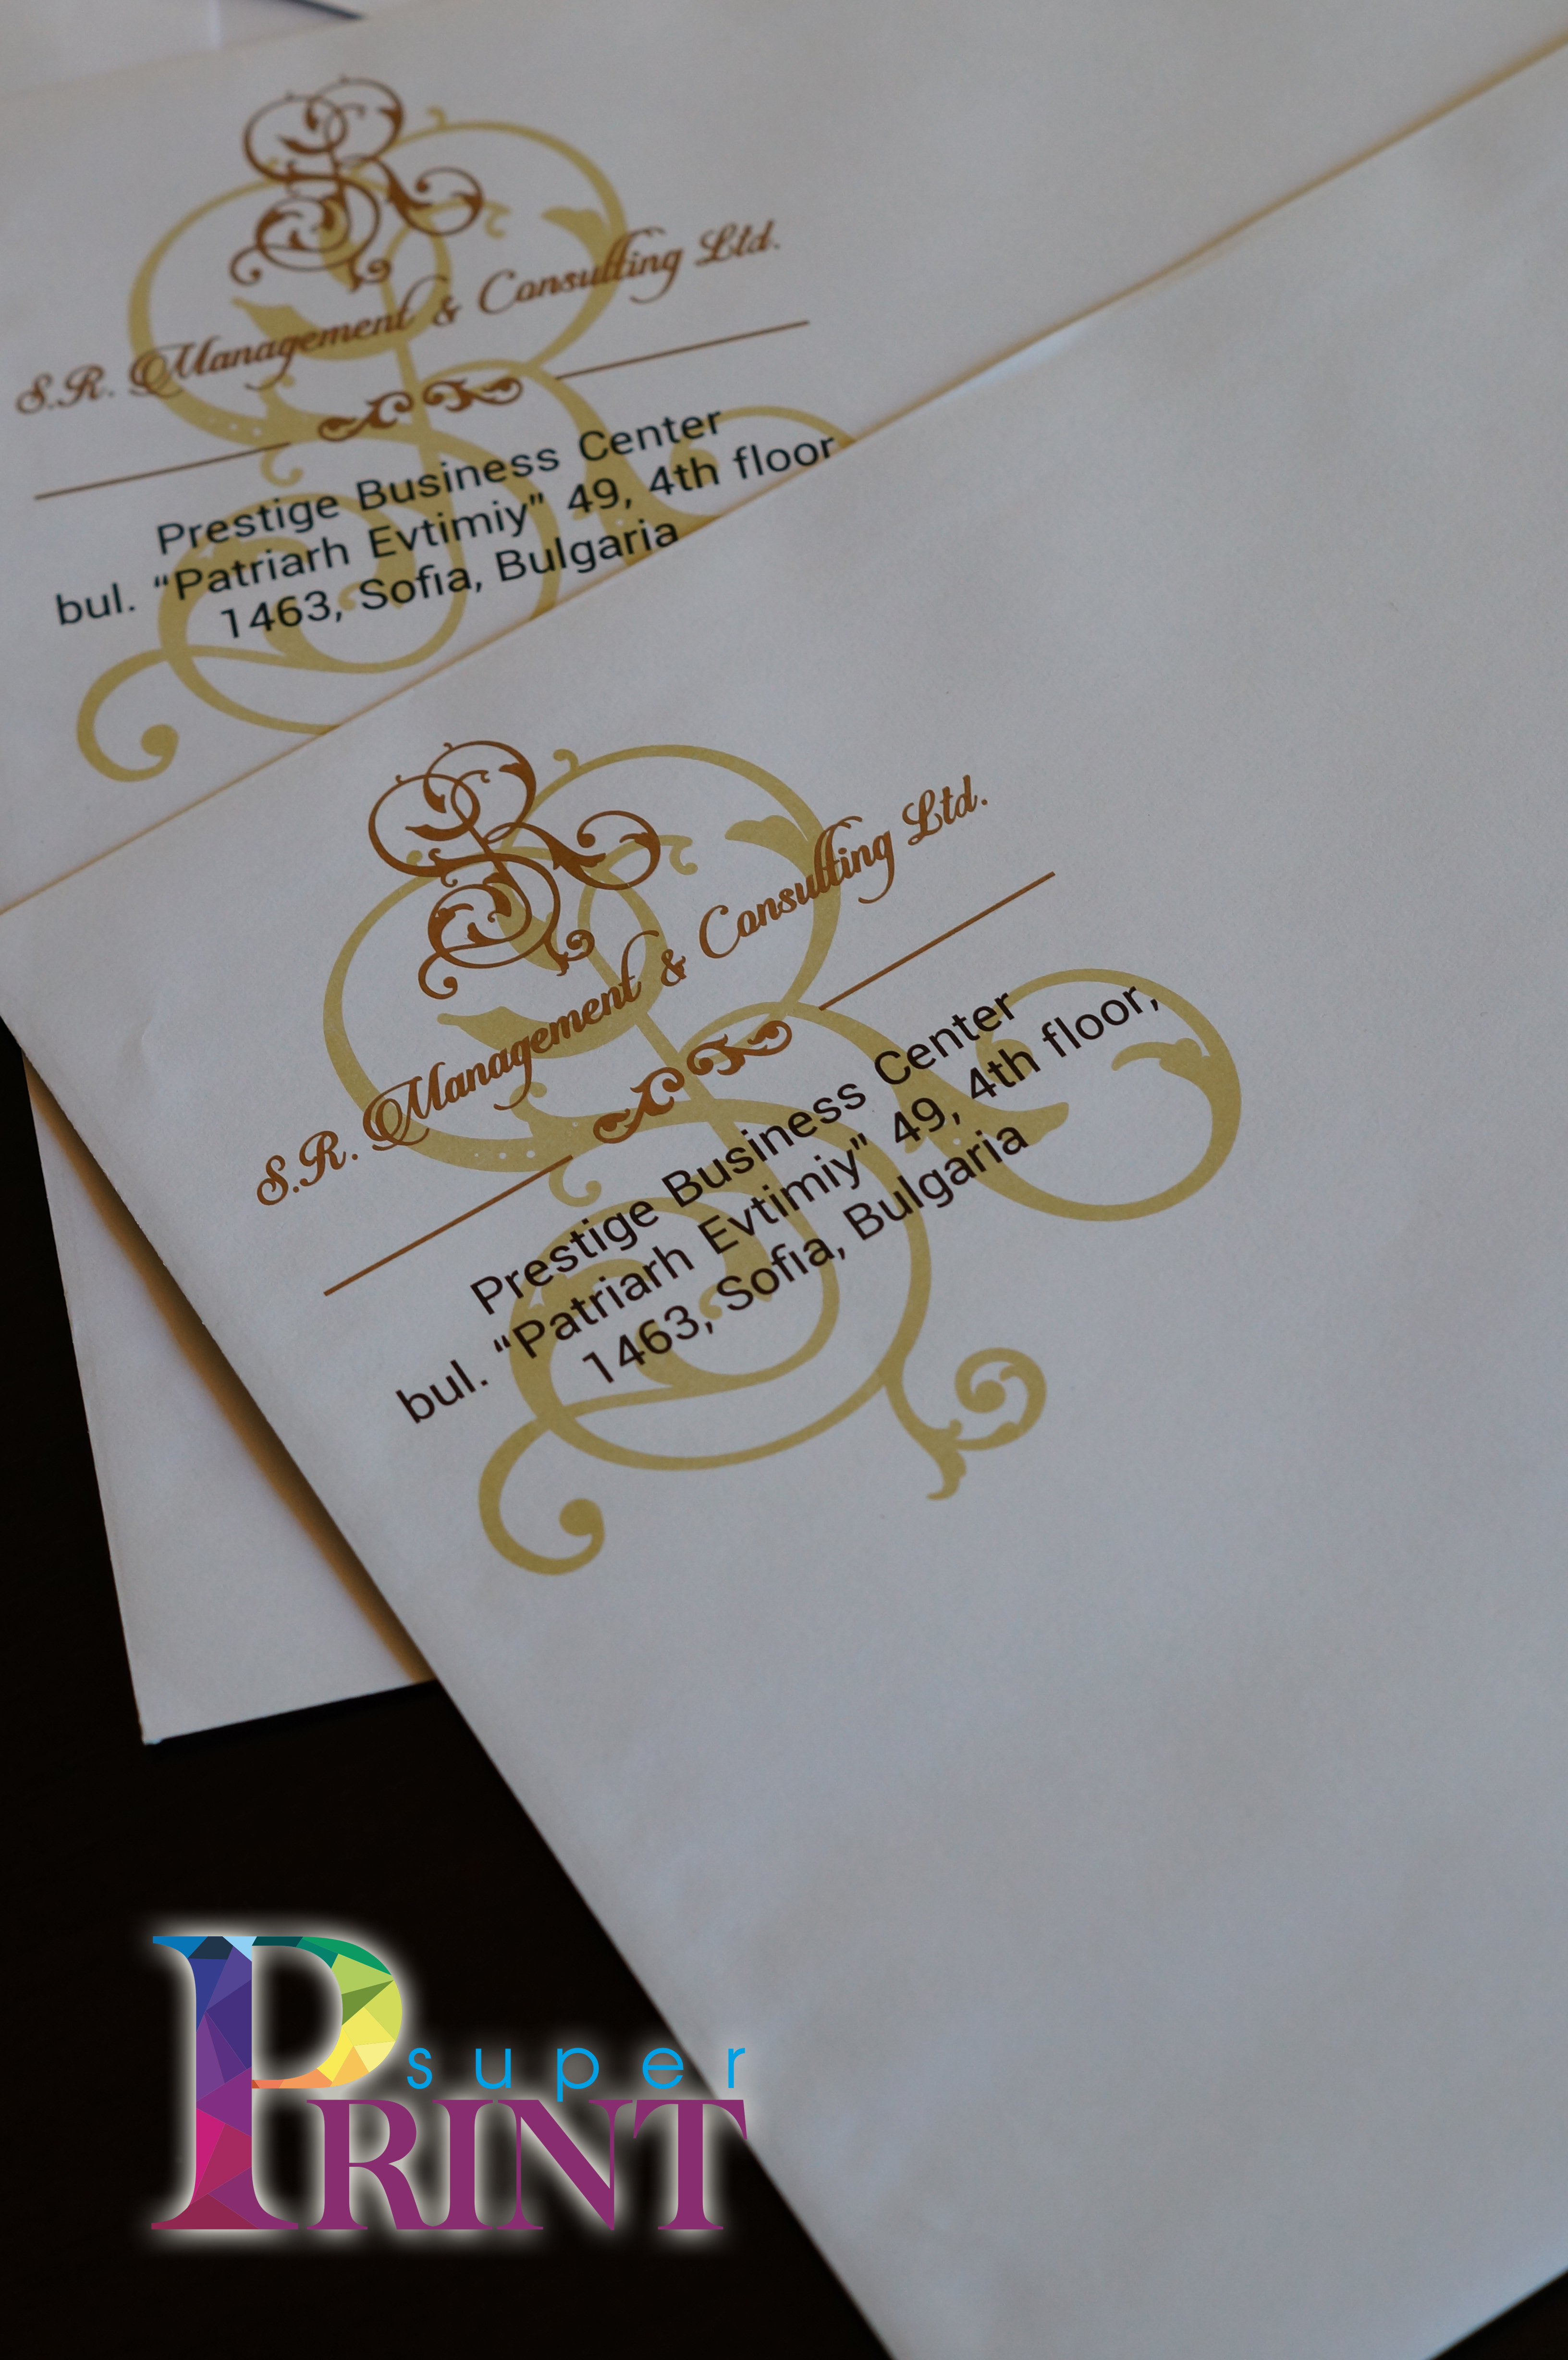 S.R. Management & Consulting Ltd.
Prestige Business Center
bul. “Patriarh Evtimiy” 49, 4th floor
1463, Sofia, Bulgaria
S.R. Management & Consulting Ltd.
Prestige Business Center
bul. “Patriarh Evtimiy” 49, 4th floor,
1463, Sofia, Bulgaria
super
PRINT